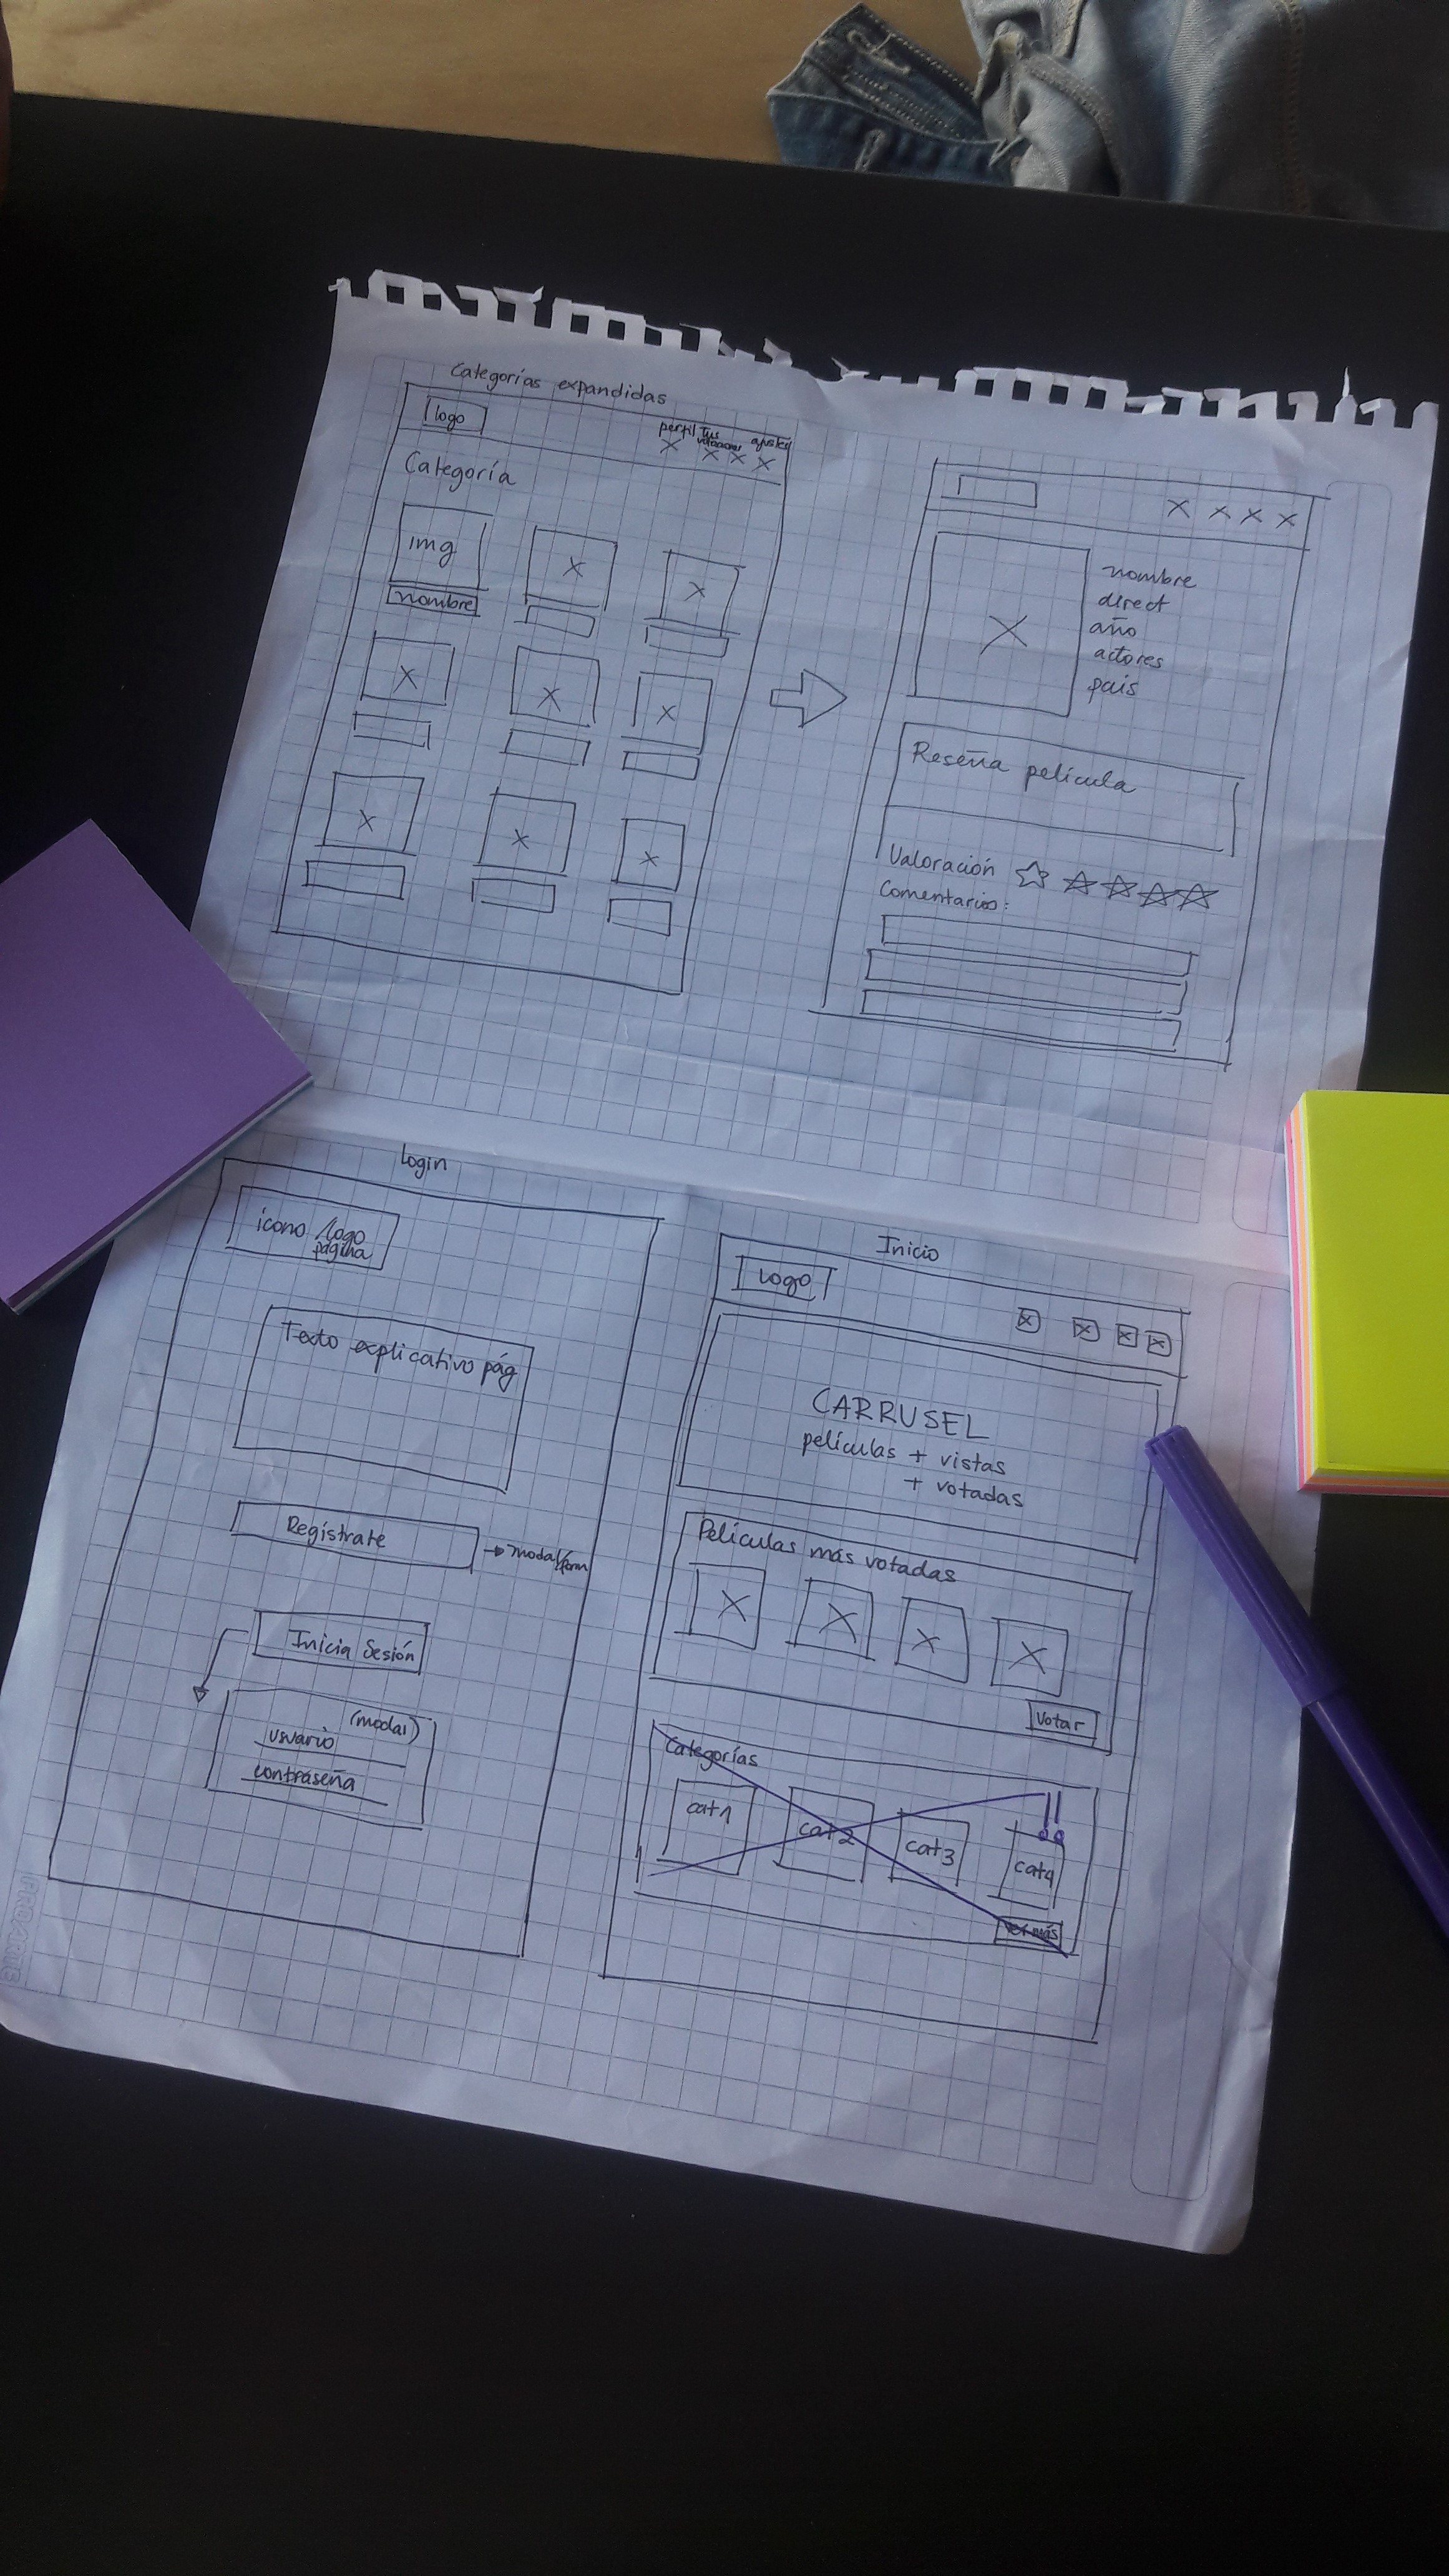 Categorías expandidas
logo
perfil Tus valoraciones ajustes
Categoría
img
nombre
nombre
direct
año
actores
pais
Reseña película
Valoración
Comentarios:
login
icono /logo
página
Texto explicativo pág
Regístrate
modal/form
Inicia Sesión
(modal)
usuario
contraseña
Inicio
Logo
CARRUSEL
películas + vistas
+ votadas
Películas más votadas
Votar
Categorías
cat1
cat2
cat3
cat4
Ver más
PACSARTE